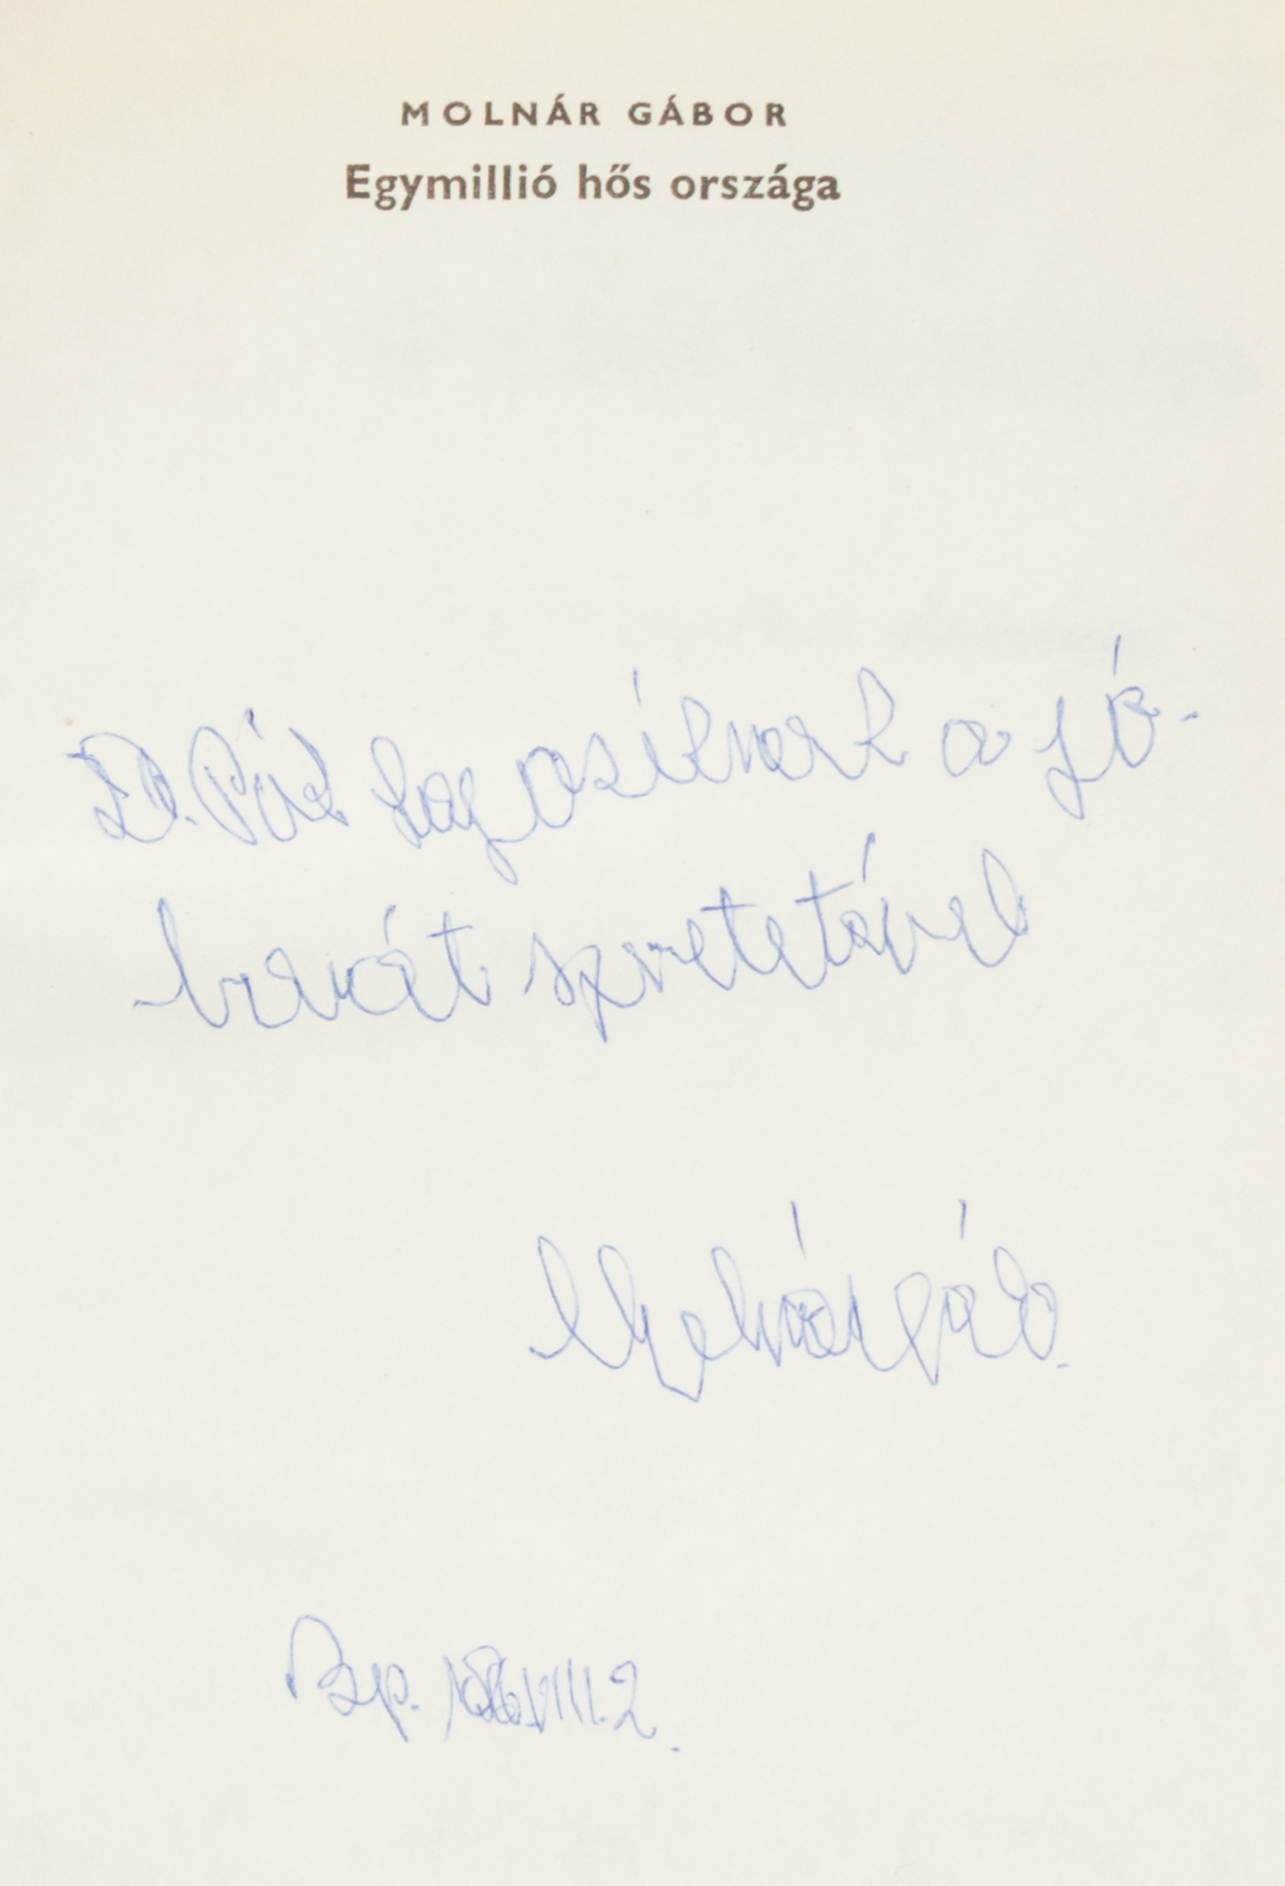 MOLNÁR GÁBOR
Egymillió hős országa
Dr. Pál a jó-
barát szeretetével
Molnár Gábor
Bp. VIII. 2.